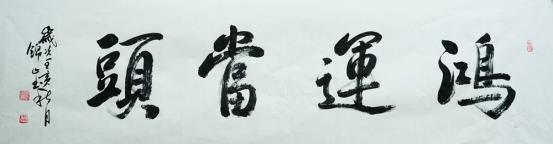 鴻運當頭
歲次壬寅秋月
錦山